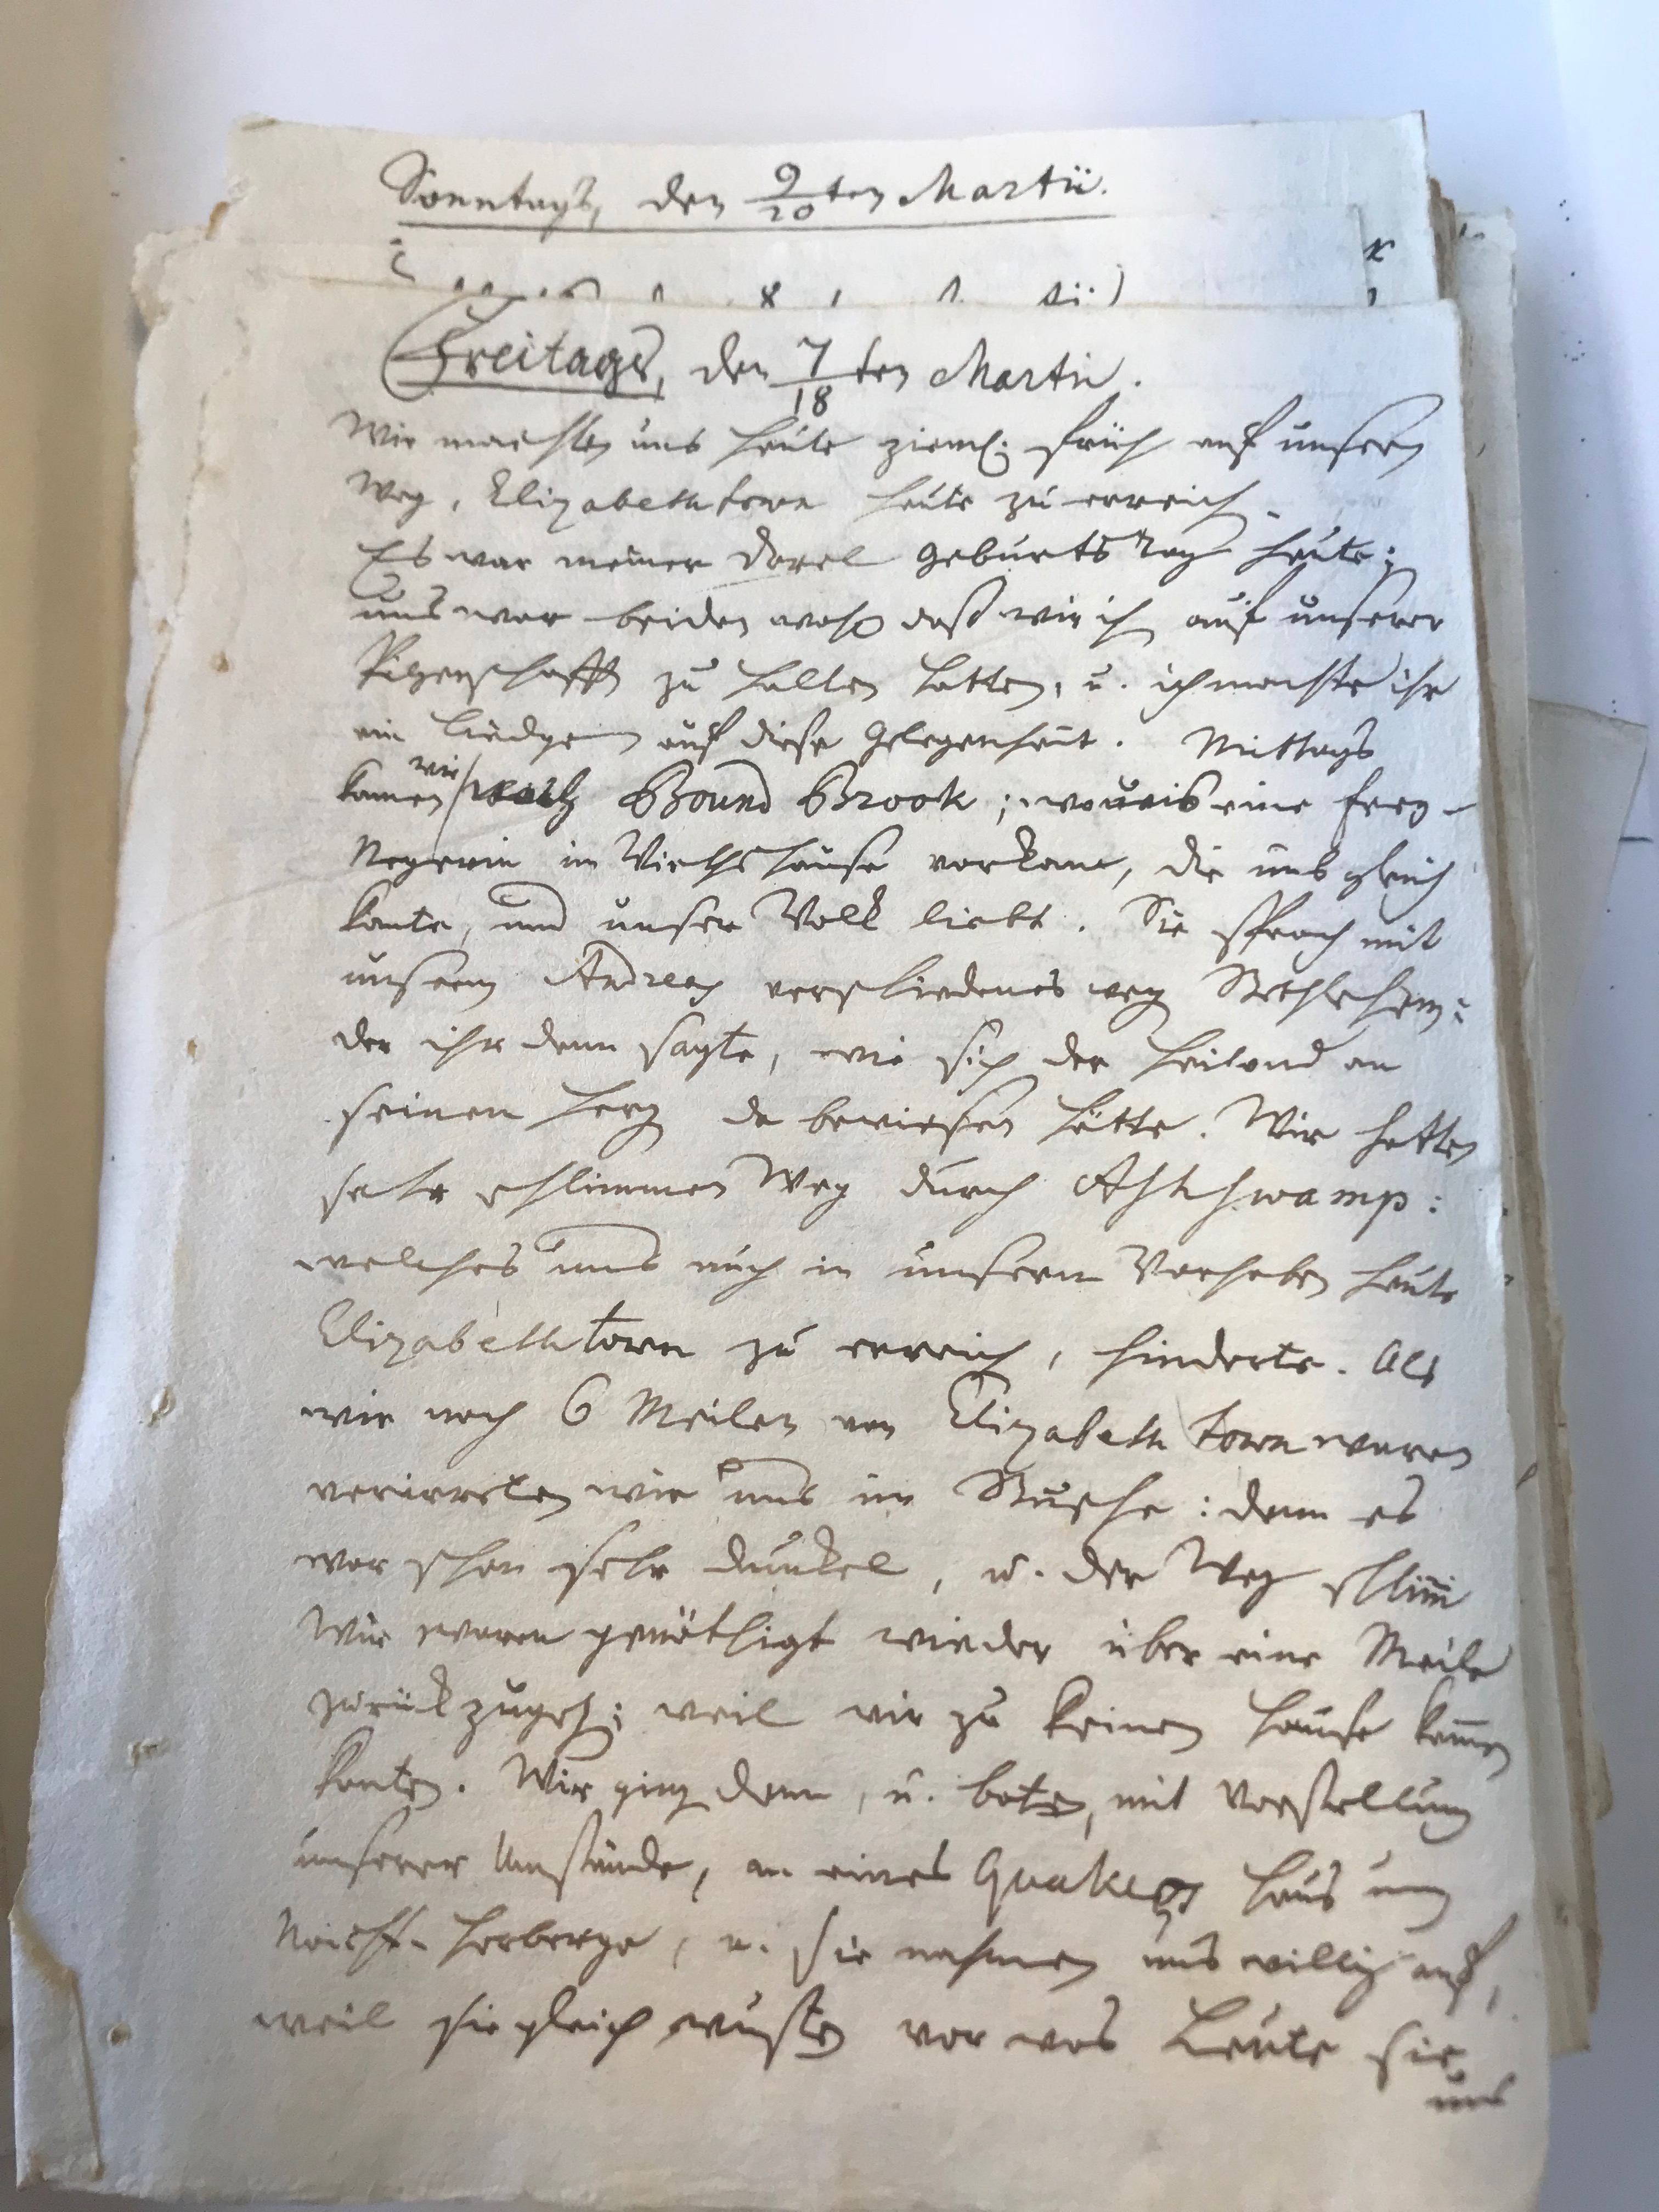 Sonntags, den 9/20ten Martii.
Freitags, den 7/18ten Martii.
Wir machten uns heute zieml. früh auf unsern
Weg, Elizabethtown heute zu erreich.
Es war meiner Dorel Geburts Tag heute;
uns war beiden wohl daß wir ih auf unserer
Pilgerschafft zu halten hatten, u. ich machte ihr
ein Liedgen auf diese Gelegenheit. Mittags
kamen wir nach Bound Brook; wo uns eine
Negerin im Wirthshause vorkam, die uns gleich
kante, und unser Volk liebt. Sie sprach mit
unserm Andreas verschiedenes weg Bethlehem:
der ihr denn sagte, wie sich der Heiland an
seinem Herz da bewiesen hätte. Wir hatten
sehr schlimmen Weg durch Ashswamp:
welches uns auch in unserm Vorhaben heute
Elizabethtown zu erreich, hinderte. Als
wir noch 6 Meilen von Elizabethtown waren
verirrten wir uns im Busche: denn es
war schon sehr dunkel, u. der Weg schlim̄
Wir waren genöthigt wieder über eine Meile
zurückzugeh; weil wir zu keinem Hause kom̄en
konten. Wir ging denn, u. baten, mit Vorstellung
unserer Umstände, an eines Quakers Haus um
Nacht-Herberge, u. sie nahmen uns willig auf,
weil sie gleich wusten vor was Leute sie
uns